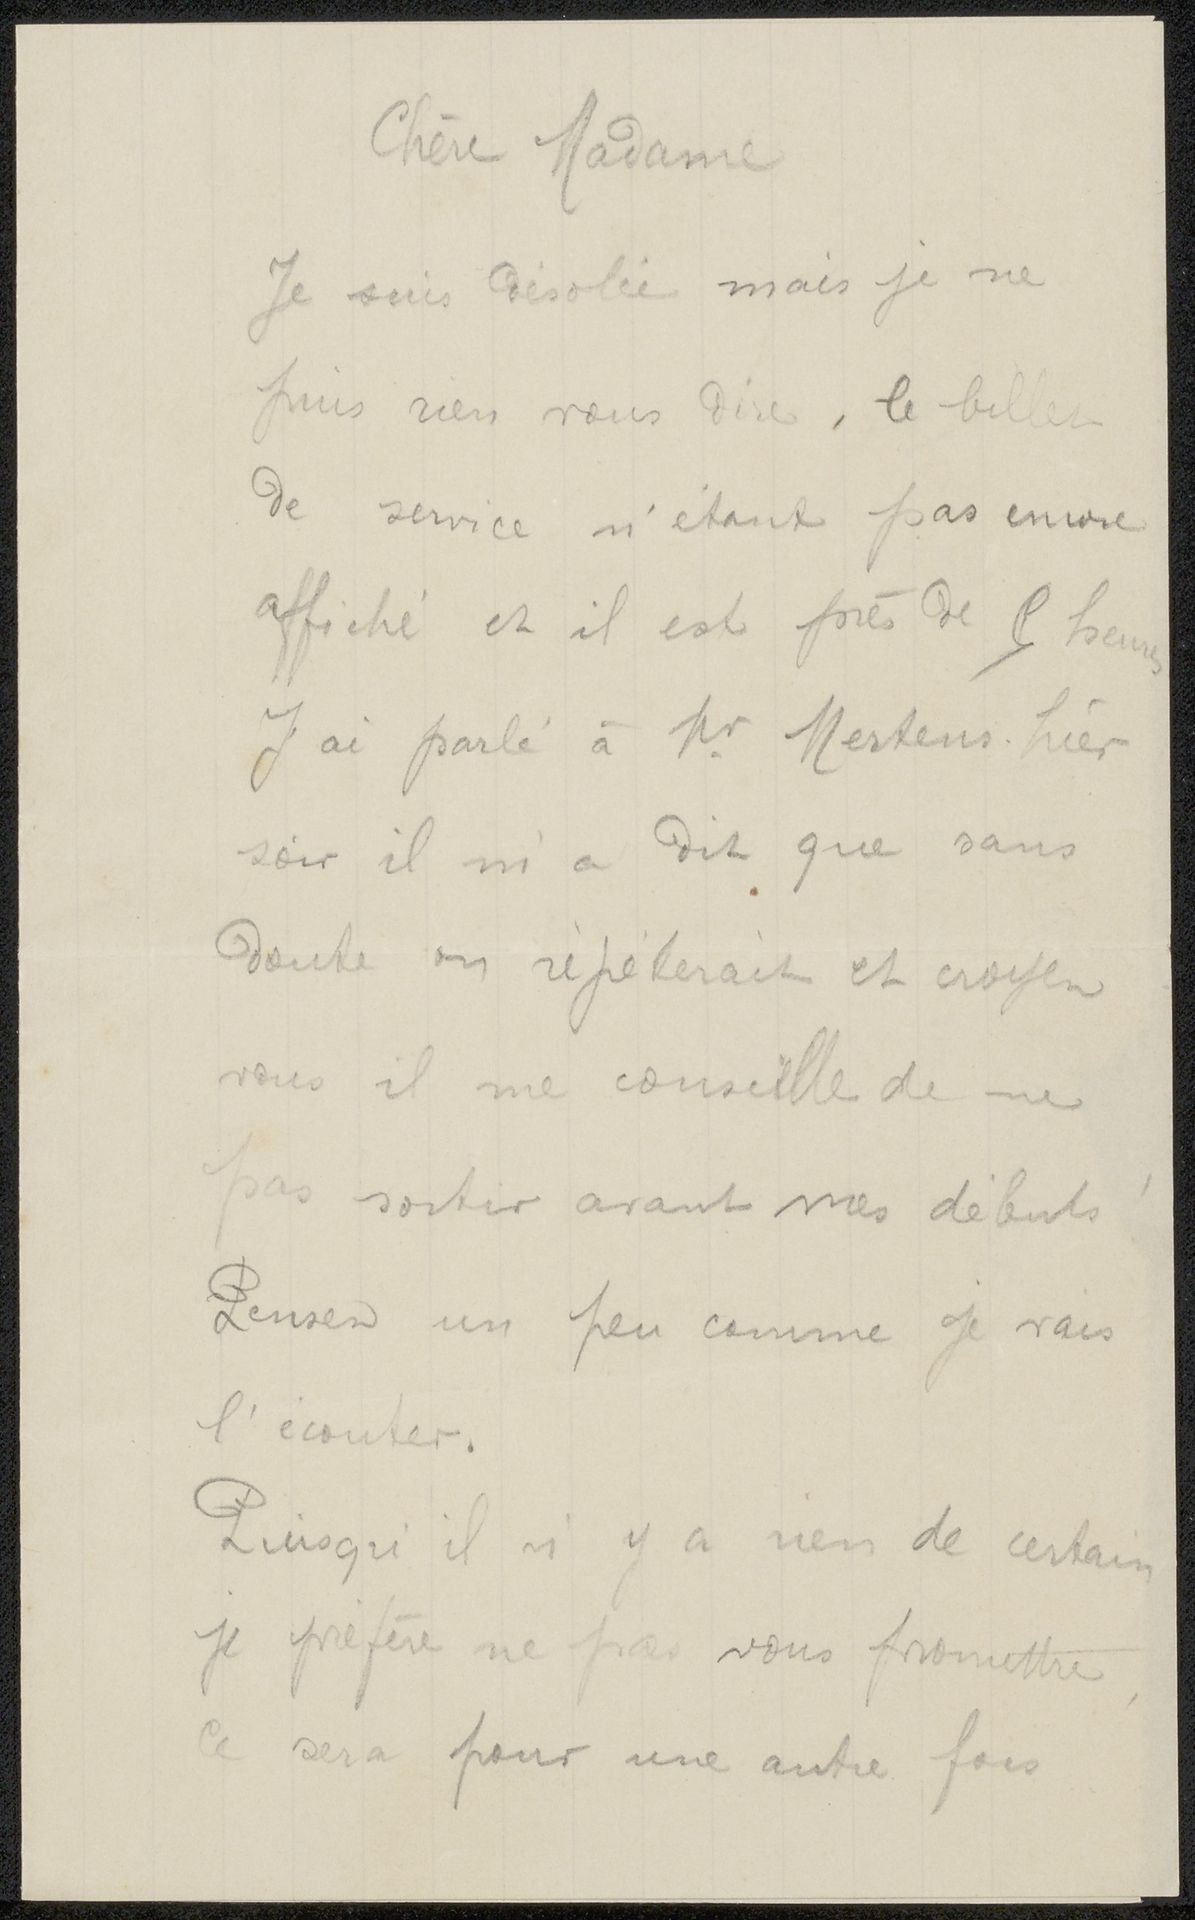 Chère Madame
Je suis désolée mais je ne
puis rien vous dire, le billet
de service n'étant pas encore
affiché et il est près de heures
J'ai parlé à Mr Mertens hier
soir il m'a dit que sans
doute on répéterait et croyez
vous il me conseille de ne
pas sortir avant mes débuts!
Pensez un peu comme je vais
l'écouter.
Puisqu'il n'y a rien de certain
je préfère ne pas vous promettre,
Ce sera pour une autre fois